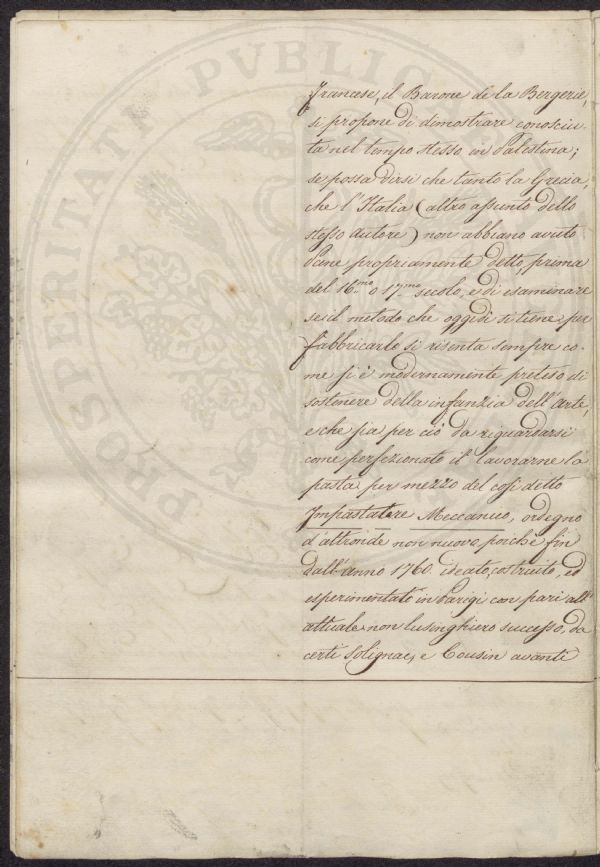 PROSPERITATI PVBLIC
Francese, il Barone de la Bergerie,
si propone di dimostrare conosciu-
ta nel tempo stesso in Palestina;
se possa dirsi che tanto la Grecia,
che l'Italia (altro assunto dello
stesso autore) non abbiano avuto
Pane propriamente detto, prima
del 16.mo o 17.mo secolo, e di esaminare
se il metodo che oggidì si tiene per
fabbricarlo si risenta sempre co-
me si è modernamente preteso di
sostenere della infanzia dell'arte,
e che sia per ciò da riguardarsi
come perfezionato il lavorarne la
pasta per mezzo del così detto
Impastatore Meccanico, ordegno
d'altronde non nuovo, poichè fin
dall'anno 1760. ideato, costruito, ed
esperimentato in Parigi con pari all'
attuale non lusinghiero successo, da
certi Solignac, e Cousin avanti